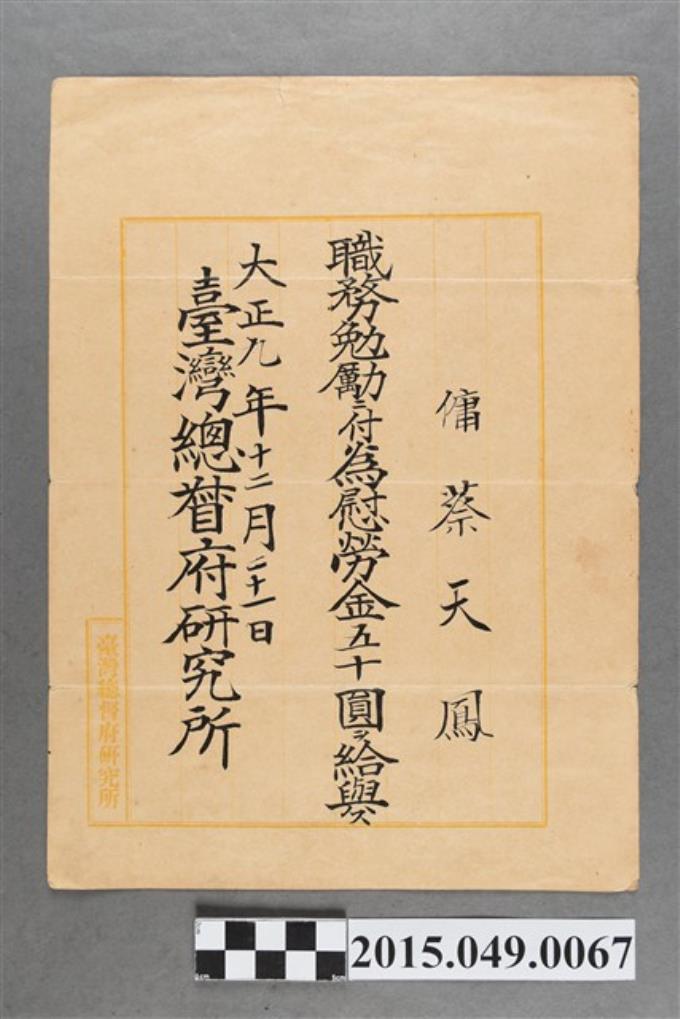 傭 蔡天鳳
職務勉勵ニ付為慰勞金五十圓ヲ給與ス
大正九年十二月二十一日
臺灣總督府研究所
臺灣總督府研究所
2015.049.0067